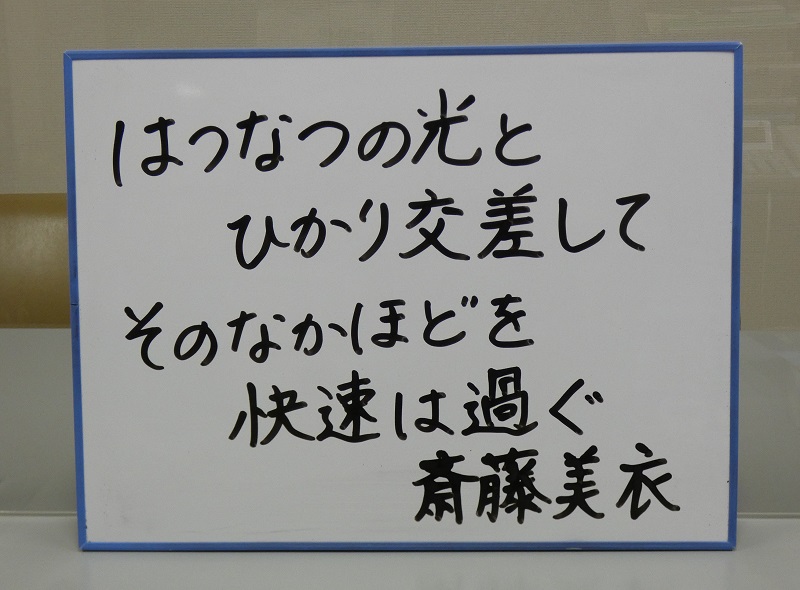 はつなつの光と
ひかり交差して
そのなかほどを
快速は過ぐ
斎藤美衣